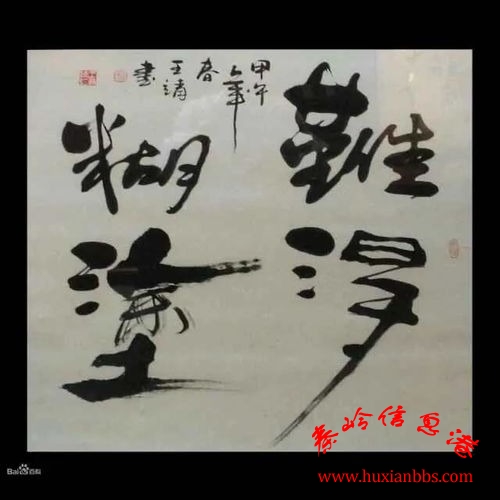 難得
糊塗
甲午
年
春
王
書
秦岭信息港
www.huxianbbs.com
Bai百科